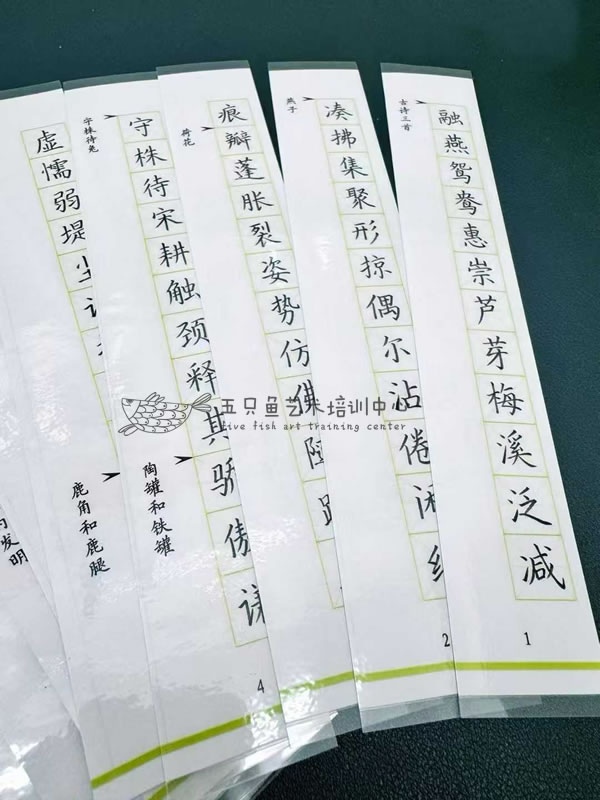 古诗三首
融燕鸳鸯惠崇芦芽梅溪泛减
1
燕子
凑拂集聚形掠偶尔沾倦闲
2
荷花
痕瓣蓬胀裂姿势仿佛
守株待兔
守株待宋耕触颈释其骄傲谦
陶罐和铁罐
4
虚懦弱堤尘
鹿角和鹿腿
发明
五只鱼艺术培训中心
five fish art training center